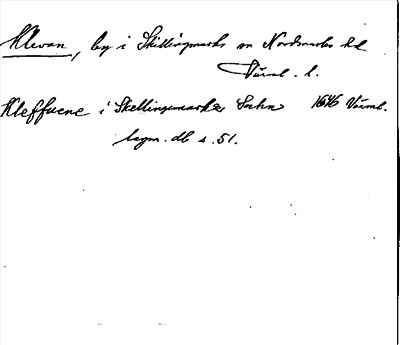 Klevan, by i Skillingmarks sn Nordmarks hd
Värml. l.
Kleffuene i Skellingzmarka Sochn 1646 Värml.
lagm. db s. 51.